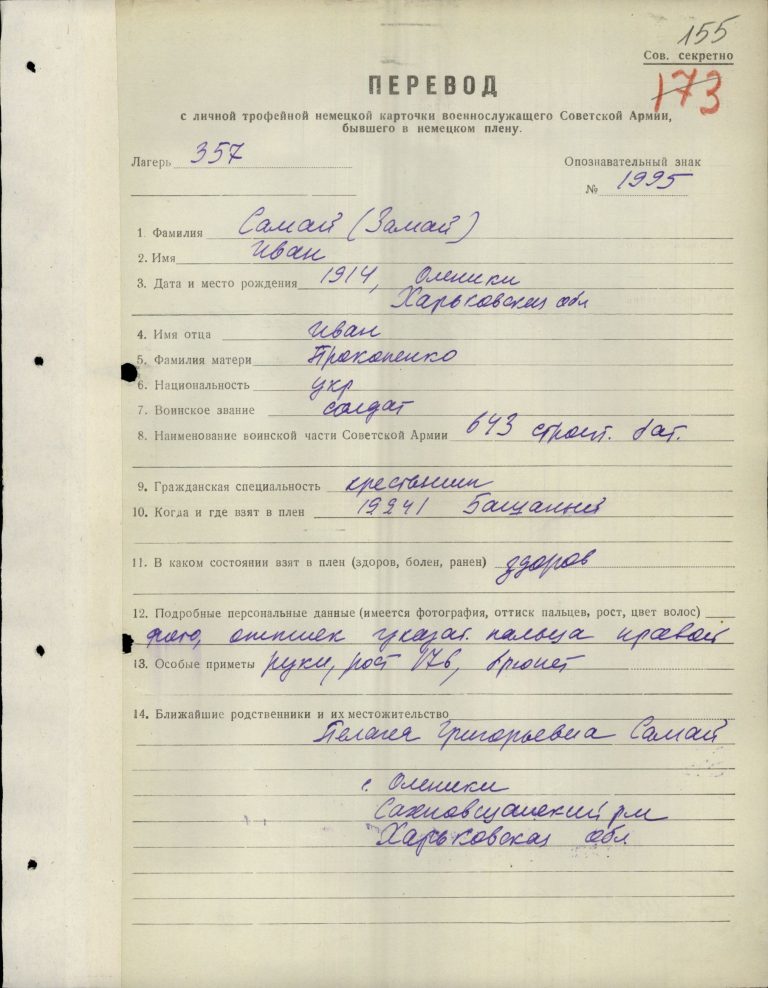 155
Сов. секретно
173
ПЕРЕВОД
с личной трофейной немецкой карточки военнослужащего Советской Армии,
бывшего в немецком плену.
Лагерь 357
Опознавательный знак
№ 1995
1. Фамилия Самай (Замай)
2. Имя Иван
3. Дата и место рождения 1914, Оленики
Харьковская обл
4. Имя отца Иван
5. Фамилия матери Прокопенко
6. Национальность укр
7. Воинское звание солдат
8. Наименование воинской части Советской Армии 643 строит. бат.
9. Гражданская специальность крестьянин
10. Когда и где взят в плен
11. В каком состоянии взят в плен (здоров, болен, ранен) здоров
12. Подробные персональные данные (имеется фотография, оттиск пальцев, рост, цвет волос)
фото, оттиск указат. пальца правой
13. Особые приметы руки, рост 176, брюнет
14. Ближайшие родственники и их местожительство
Пелагея Григорьевна Самай
с. Оленики
Сахновщанский рн
Харьковская обл.